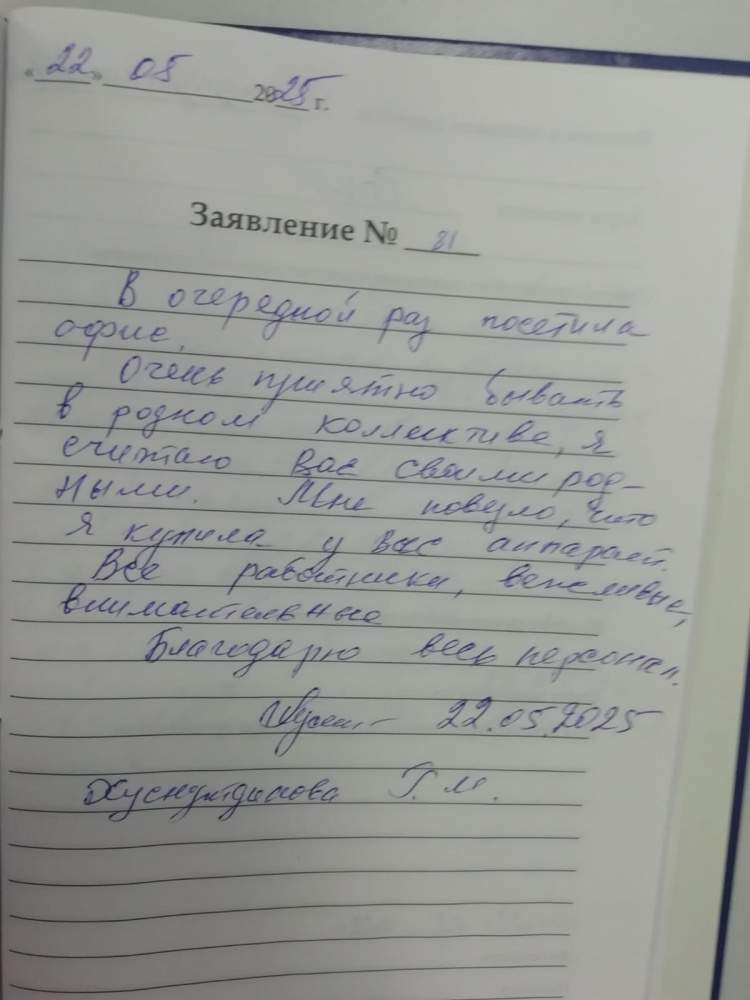 «22» 05 2025 г.
Заявление № 81
В очередной раз посетила
офис.
Очень приятно бывать
в родном коллективе, я
считаю Вас своими род-
ными. Мне повезло, что
я купила у Вас аппарат.
Все работники, вежливые,
внимательные
Благодарю весь персонал.
22.05.2025
Хуснутдинова Г. М.